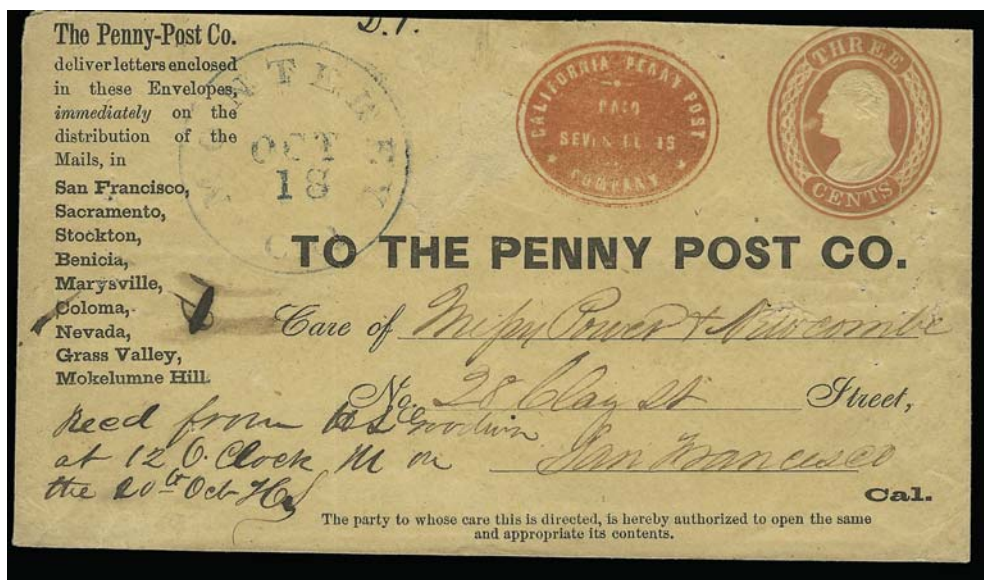 D.P.
The Penny-Post Co.
deliver letters enclosed
in these Envelopes,
immediately on the
distribution of the
Mails, in
San Francisco,
Sacramento,
Stockton,
Benicia,
Marysville,
Coloma,
Nevada,
Grass Valley,
Mokelumne Hill.
MONTEREY
OCT
18
CALIFORNIA PENNY POST
PAID
SEVEN CENTS
COMPANY
THREE
CENTS
TO THE PENNY POST CO.
Care of Messrs Power & Newcombe
No. 28 Clay St Street,
San Francisco
Cal.
Recd from Goodwin
at 12 O.Clock M on
the 20th Oct
The party to whose care this is directed, is hereby authorized to open the same
and appropriate its contents.